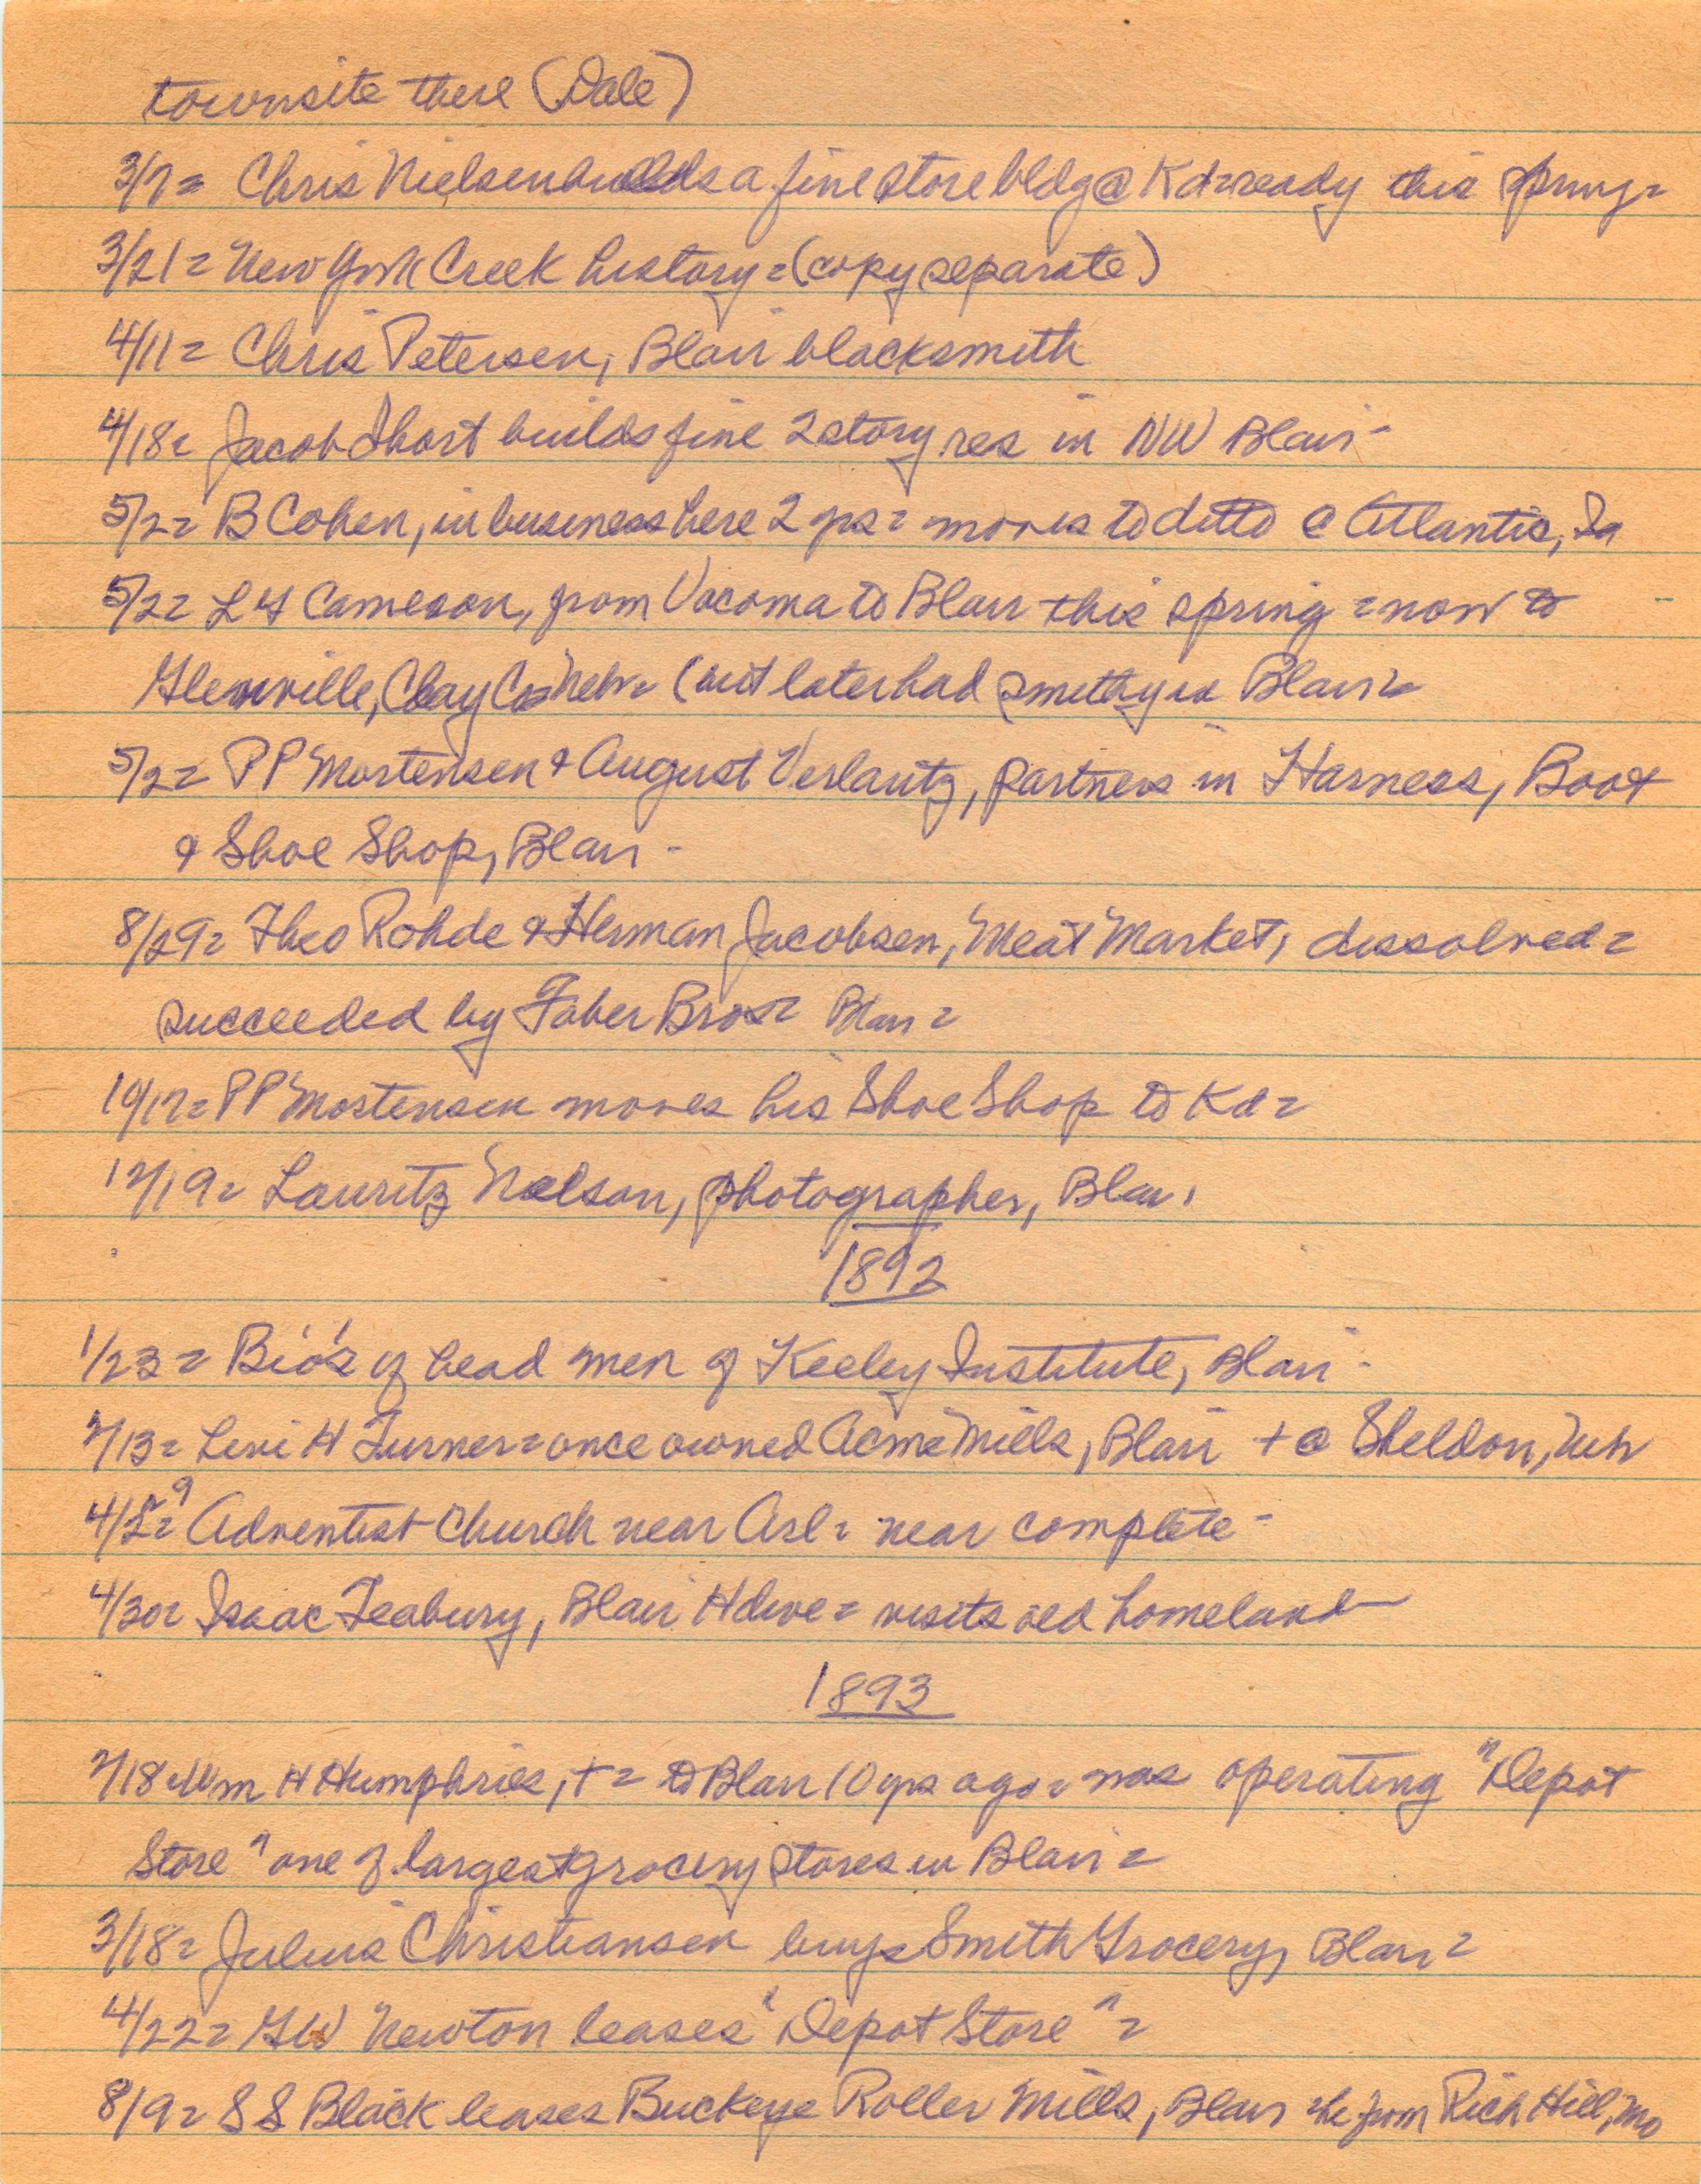 townsite there (Dale)
3/7= Chris Nielsen builds a fine store bldg @ Kd=ready this spring=
3/21= New York Creek history=(copy separate)
4/11= Chris Petersen, Blair blacksmith
4/18= Jacob Short builds fine 2 story res in NW Blair-
5/2= B Cohen, in business here 2 yrs= moves to ditto @ Atlantic, Ia
5/2= L H Cameron, from Vacoma to Blair this spring =now to
Glenville, Clay Co Nebr= (but later had smithy in Blair=
5/2= PP Mortensen & August Verlautz, partners in Harness, Boot
& Shoe Shop, Blair-
8/29= Theo Rohde & Herman Jacobsen, Meat Market, dissolved=
succeeded by Faber Bros= Blair=
10/17= PP Mortensen moves his Shoe Shop to Kd=
12/19= Lauritz Nelson, photographer, Blair.
1892
1/23= Bio's of head men of Keeley Institute, Blair-
2/13= Levi H Turner=once owned Acme Mills, Blair + @ Sheldon, Neb
4/29= Adventist Church near Arl= near complete-
4/30= Isaac Teabury, Blair Hdwe= visits old homeland-
1893
2/18= Wm H Humphries, += to Blair 10 yrs ago= was operating "Depot
Store" one of largest grocery stores in Blair=
3/18= Julius Christiansen buys Smith Grocery, Blair=
4/22= GW Newton leases "Depot Store"=
8/19= S S Black leases Buckeye Roller Mills, Blair =he from Rich Hill, Mo